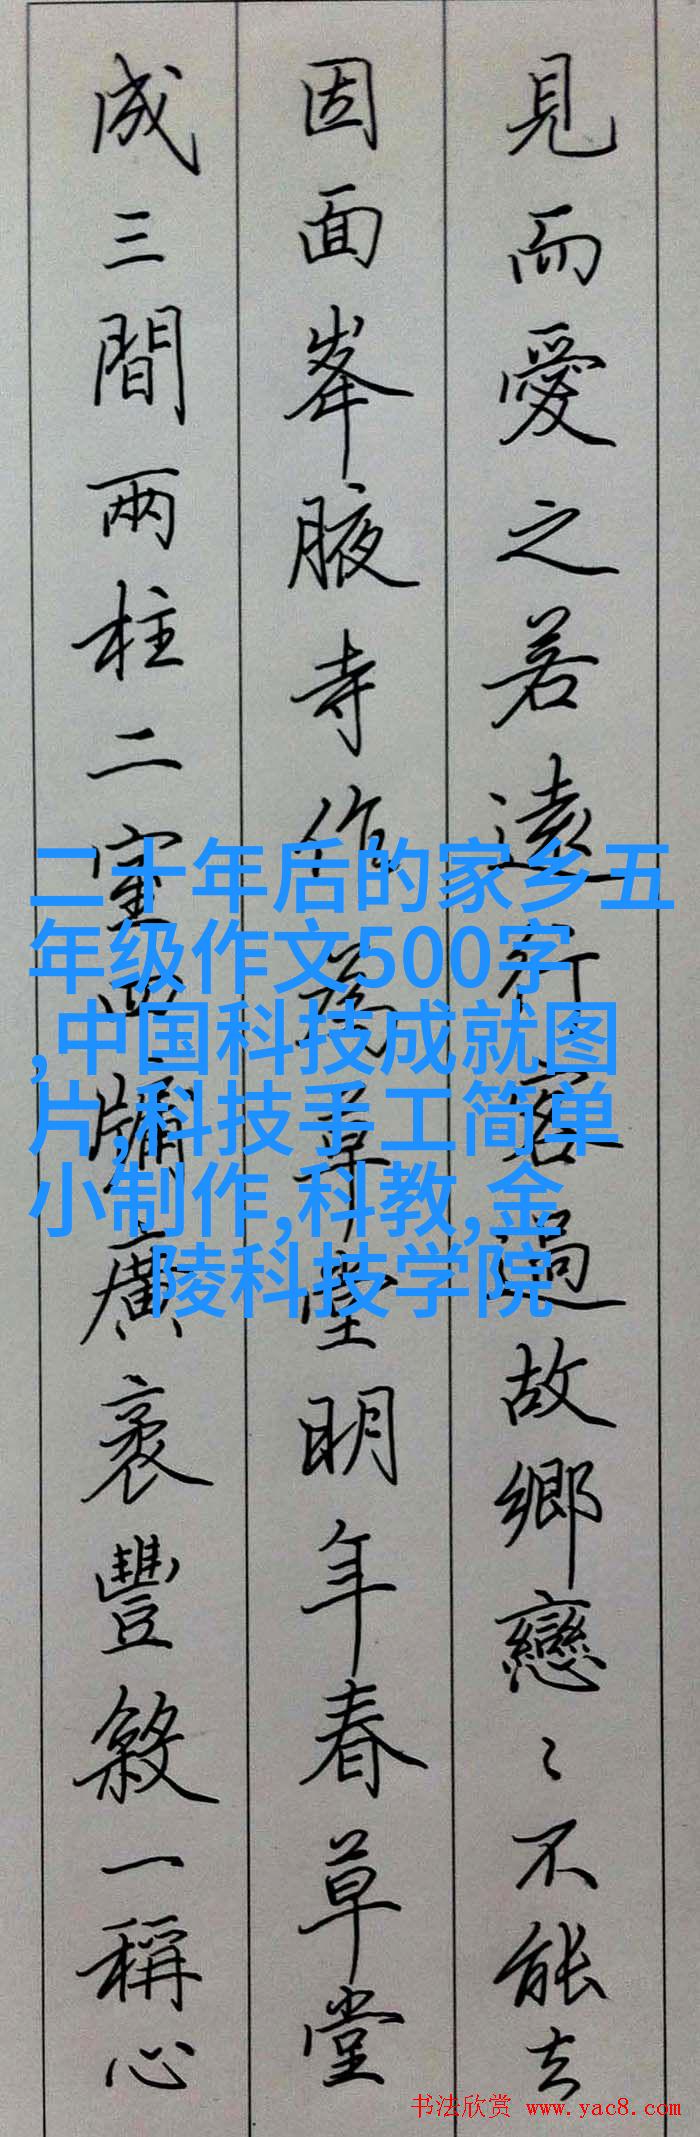 見而愛之若遠行客過故鄉戀〻不能去
因面峯腋寺作為草堂明年春草堂
成三間兩柱二室四牖廣袤豐殺一稱心
二十年后的家乡五
年级作文500字
,中国科技成就图
片,科技手工简单
小制作,科教,金
陵科技学院
书法欣赏 www.yac8.com